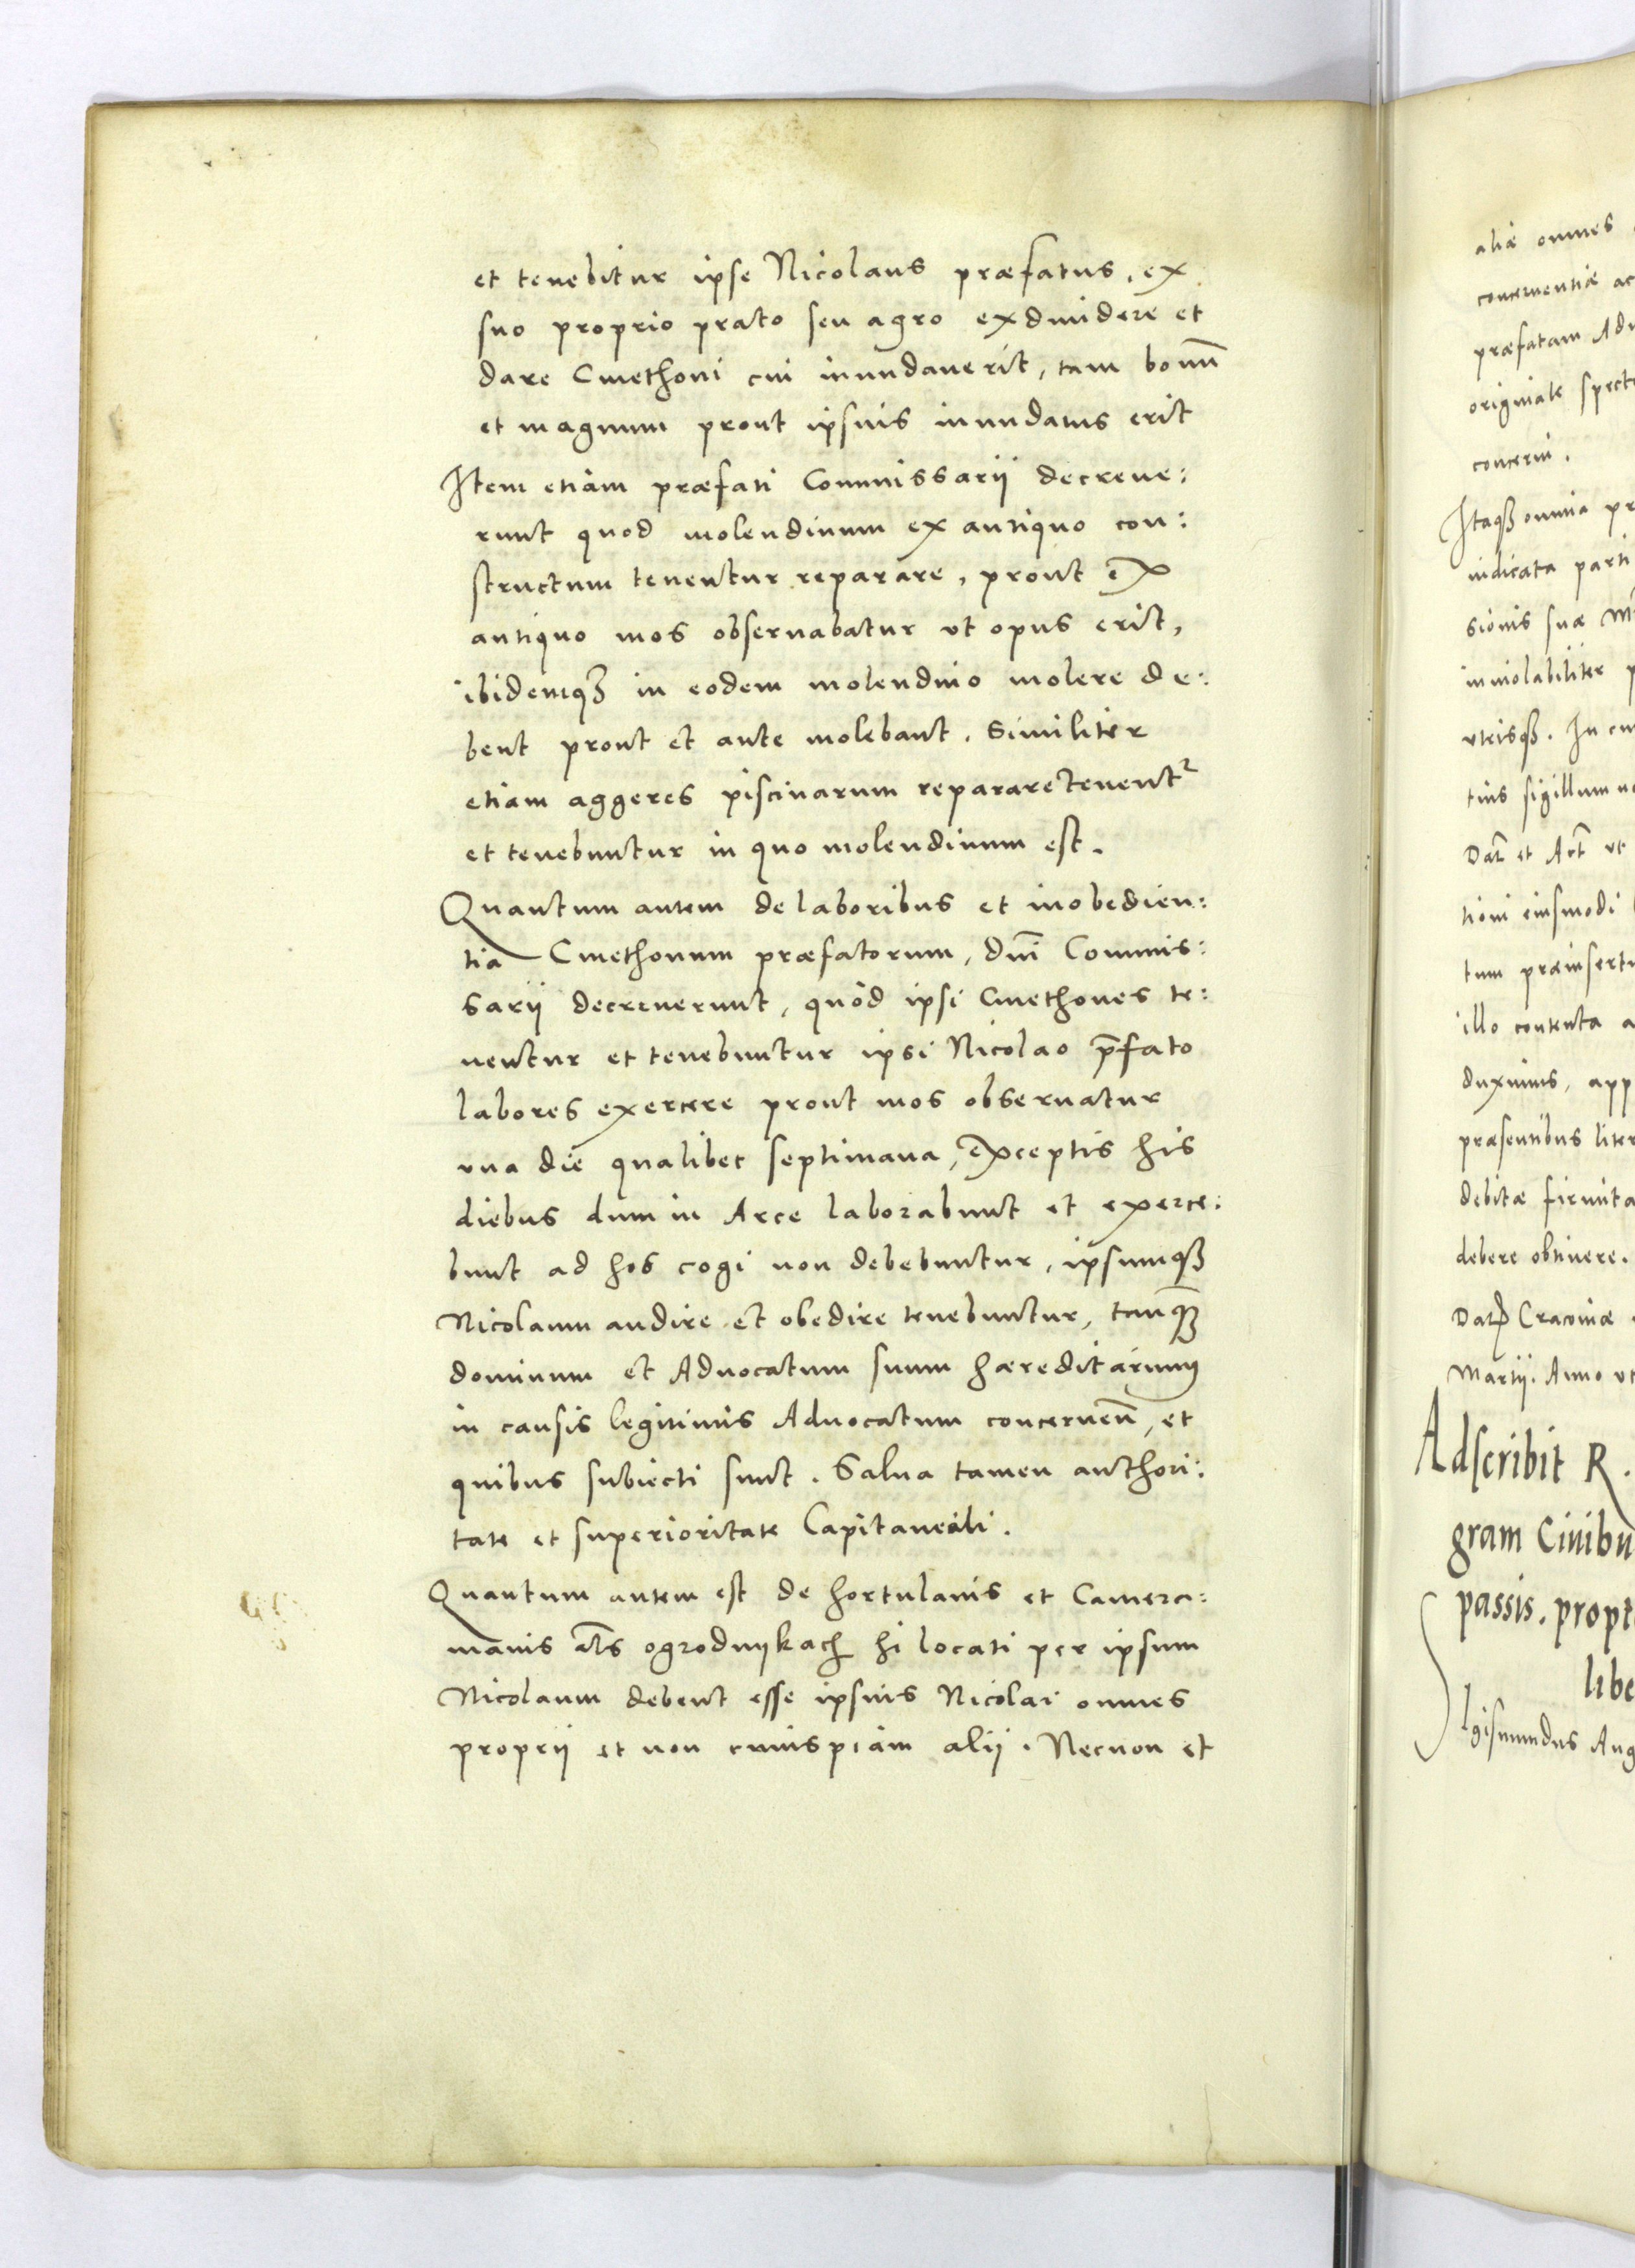 et tenebitur ipse Nicolaus præfatus, ex
suo proprio prato seu agro exdiuidere et
dare Cmethoni cui inundauerit, tam bonũ
et magnum prout ipsius inundatus erit
Item etiam præfati Commissarii decreue:
runt quod molendinum ex antiquo con:
structum tenentur reparare, prout ex
antiquo mos obseruabatur vt opus erit,
ibidemqꝫ in eodem molendino molere de:
bent prout et ante molebant. Similiter
etiam aggeres piscinarum reparare tenentr
et tenebuntur in quo molendinum est.
Quantum autem de laboribus et inobedien:
tia Cmethonum præfatorum, dñi Commis:
sarii decreuerunt, quòd ipsi Cmethones te:
nentur et tenebuntur ipsi Nicolao p̃fato
labores exercere prout mos obseruatur
vna die qualibet septimana, exceptis his
diebus dum in Arce laborabunt et exerce:
bunt ad hos cogi non debebuntur, ipsumqꝫ
Nicolaum audire et obedire tenebuntur, tanqꝫ
dominum et Aduocatum suum hæreditarium
in causis legitimis Aduocatum concernen̄, et
quibus subiecti sunt. Salua tamen authori:
tate et superioritate Capitaneali.
Quantum autem est de hortulanis et Camera:
manis al̄s ogrodnykach hi locati per ipsum
Nicolaum debent esse ipsius Nicolai omnes
proprii et non cuiuspiam alii. Necnon et
aliæ omnes
concernentiæ ac
præfatam Adu
originale spect
concerni.
Itaqꝫ omnia pr
iudicata parti
sionis suæ
inuiolabiliter p
vtrisqꝫ. In cu
tius sigillum n
Dat̃ et Act̃ vt
tioni eiusmodi
tum præinsertu
illo contenta a
duximus, app
præsentibus liter
debitæ firmita
debere obtinere.
Dat̃ Cracouiæ
Martii. Anno vt
Adscribit R.
gram Ciuibu
passis. propt
libe
Sigismundus Aug